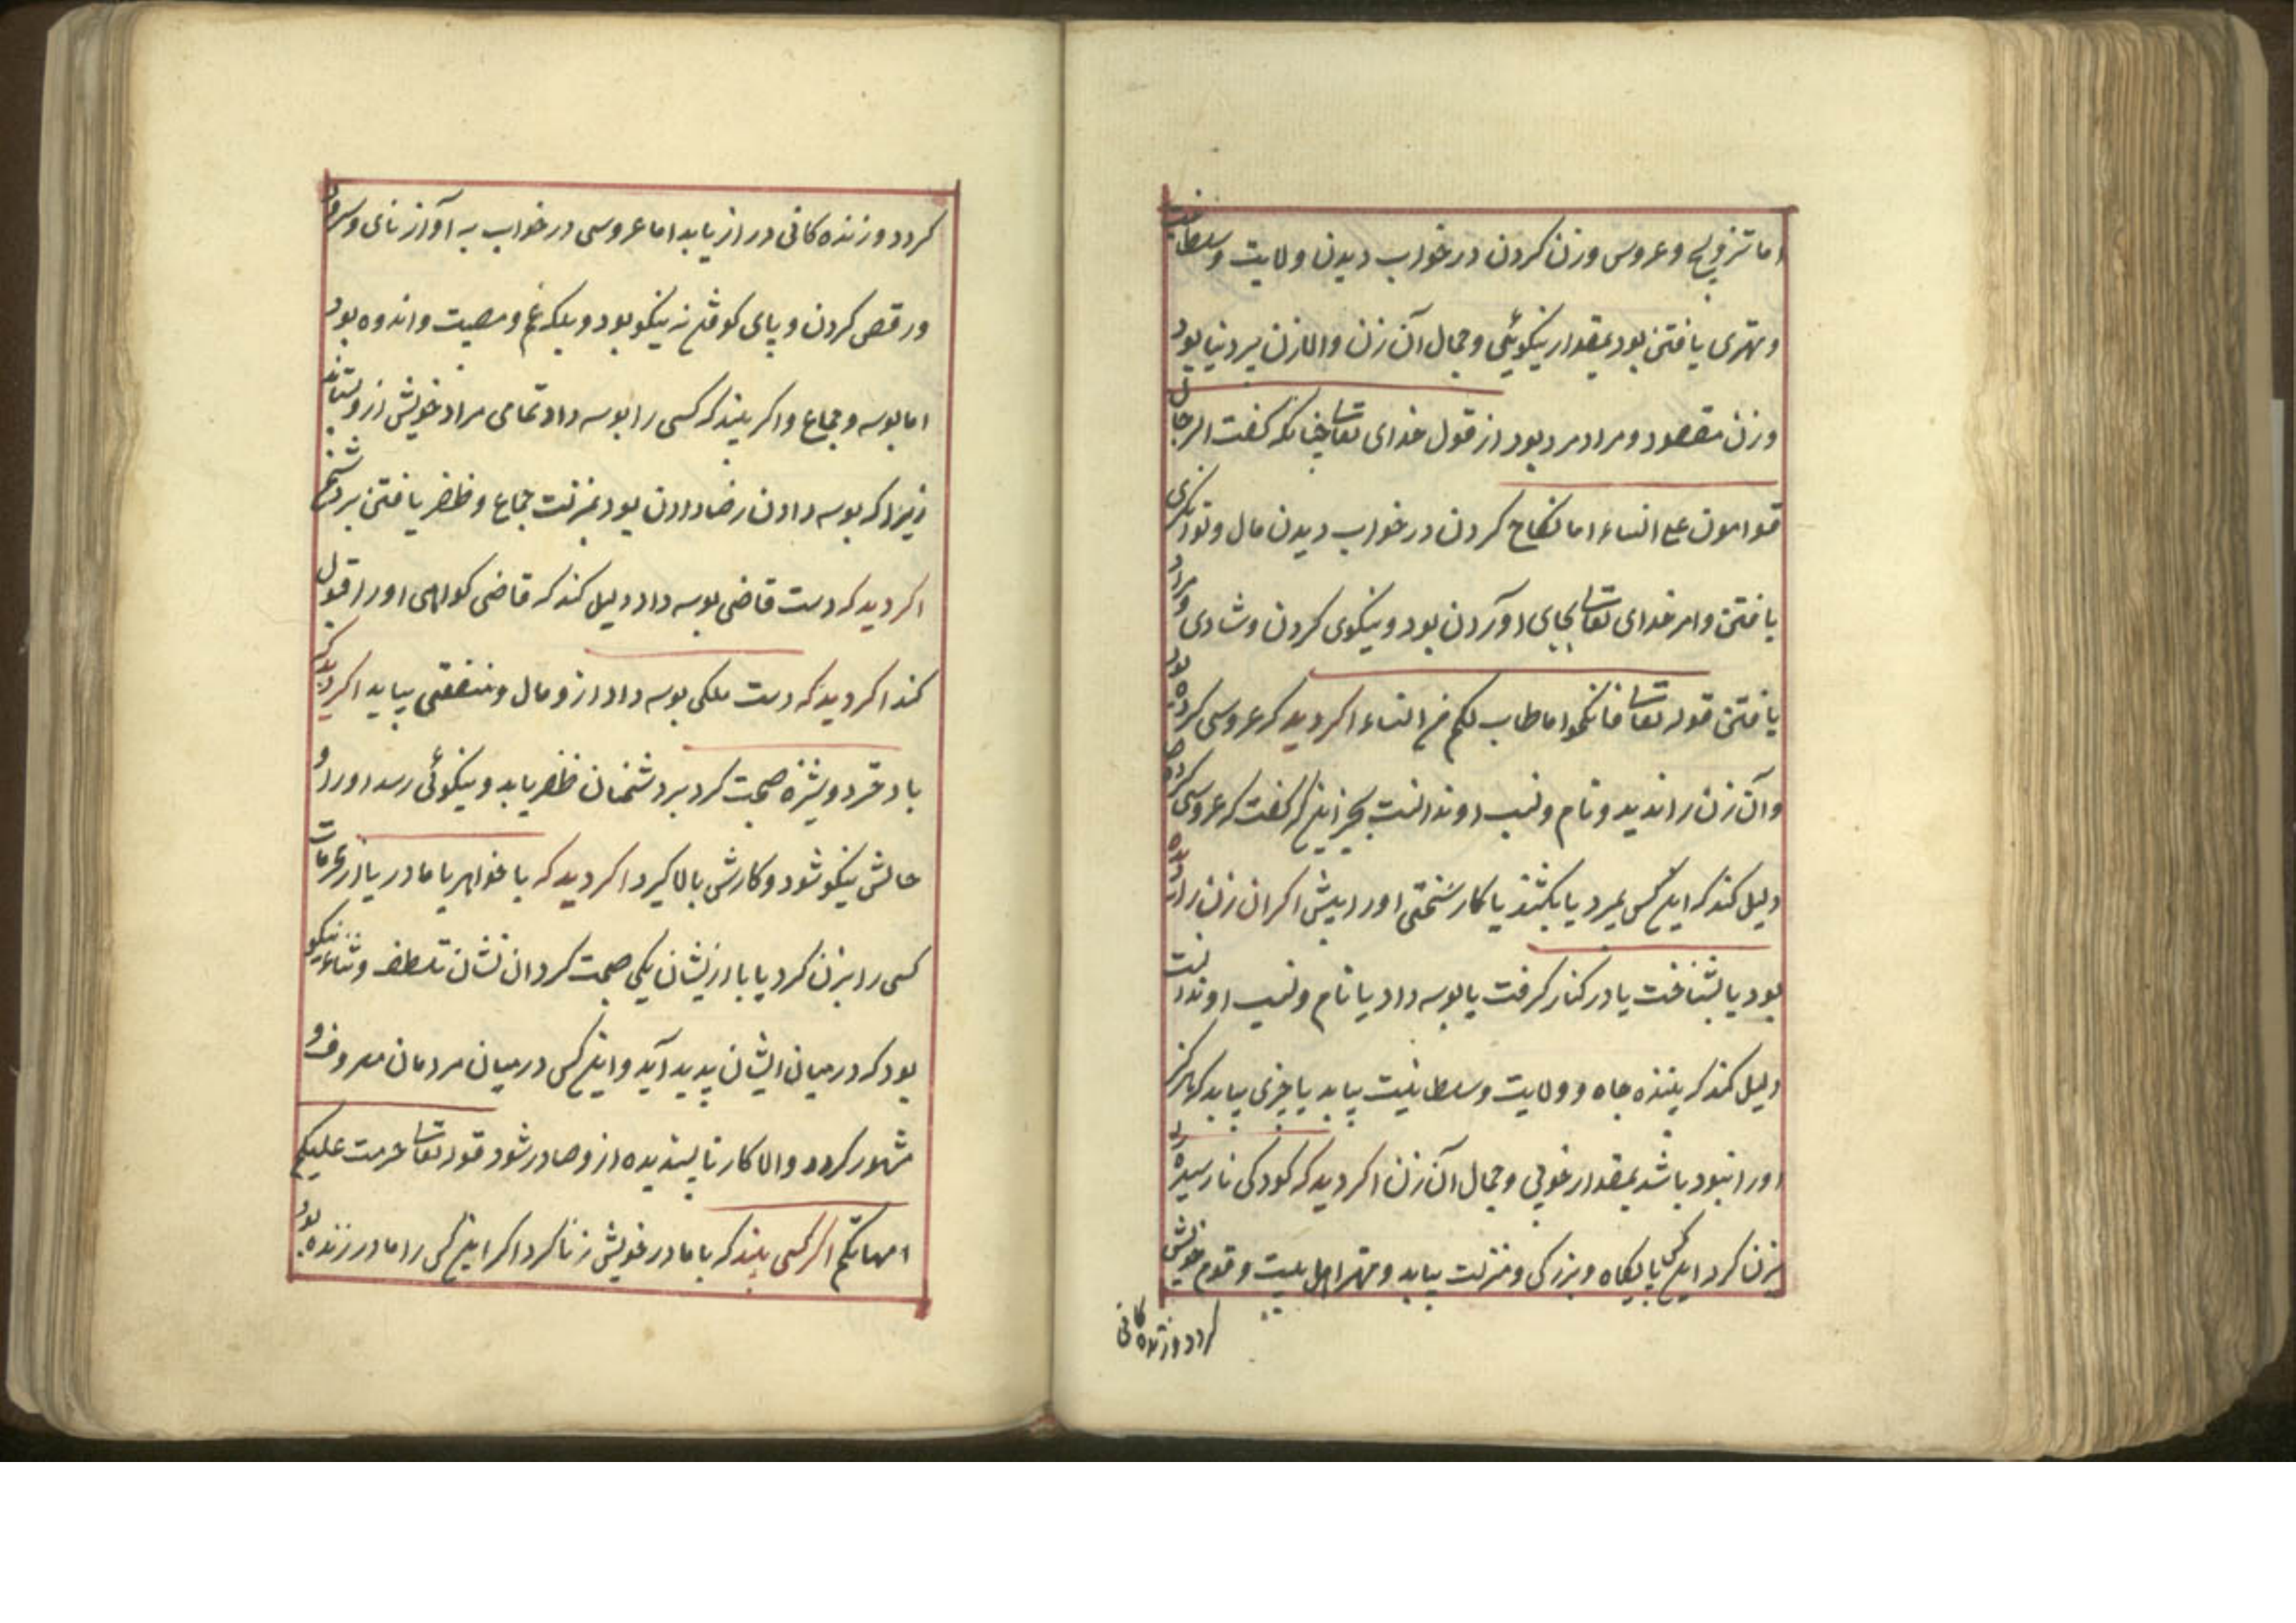 اما تزویج و عروس وزن کردن در خواب دیدن ولایت و سلطانیت
و مهتری یافتن بود بمقدار نیکوئی و جمال آن زن والا زن بر دنیا بود
وزن مقصود و مراد مرد بود از قول خدای تعالی چنانکه کفت الرجال
قوامون علی النساء اما نکاح کردن در خواب دیدن مال و توانکری
یافتن و امر خدای تعالی بجای آوردن بود و نیکوی کردن و شادی و مراد
یافتن قوله تعالی فانکحوا ما طاب لکم من النساء اکر دید که عروسی کرده بود
و آن زن را ندید و نام و نسب او ندانست بجز اینکه کفت که عروسی کرده
دلیل کند که این کس بمیرد یا بکشند یا کار سختی اورا پیش اکر ان زن را دیده
بود یا بشناخت یا در کنار کرفت یا بوسه داد یا نام و نسب او ندانست
دلیل کند که بیننده جاه و ولایت و سلطانیت بیابد یا چیزی بیابد که هرکز
اورا نبود باشد بمقدار خوبی و جمال آن زن اکر دید که کودکی نارسیده
بزنا کرد این کس پایکاه و بزرکی و منزلت بیابد و مهتر اهل بیت و قوم خویش
کردد و زنده کانی
کردد و زنده کانی دراز یابد اما عروسی در خواب به آواز نای و سرود
و رقص کردن و پای کوفتن نه نیکو بود و بلکه غم و مصیبت و اندوه بود
اما بوسه و جماع و اکر بیند که کسی را بوسه داد تمامی مراد خویش ازو بستاند
زیرا که بوسه دادن رضا دادن بود بمنزلت جماع و ظفر یافتن بر دشمن
اکر دید که دست قاضی بوسه داد دلیل کند که قاضی کواهی اورا قبول
کند اکر دید که دست ملکی بوسه داد ازو مال و منفعتی بیابد اکر دید که
با دختر دویشزه صحبت کرد بر دشمنان ظفر یابد و نیکوئی رسد اورا و
حالش نیکو شود و کارش بالا کیرد اکر دید که با خواهر یا مادر یا از محرمات
کسی را بزن کرد یا با ازیشان یکی صحبت کرد ان نشان تلطف و ثناء نیکو
بود که در میان ایشان پدید آید و این کس در میان مردمان معروف و
مشهور کردد والا کار ناپسندیده ازو صادر شود قوله تعالی حرمت علیکم
امهاتکم اکر کسی بیند که با مادر خویش زنا کرد اکر این کس را مادر زنده بود